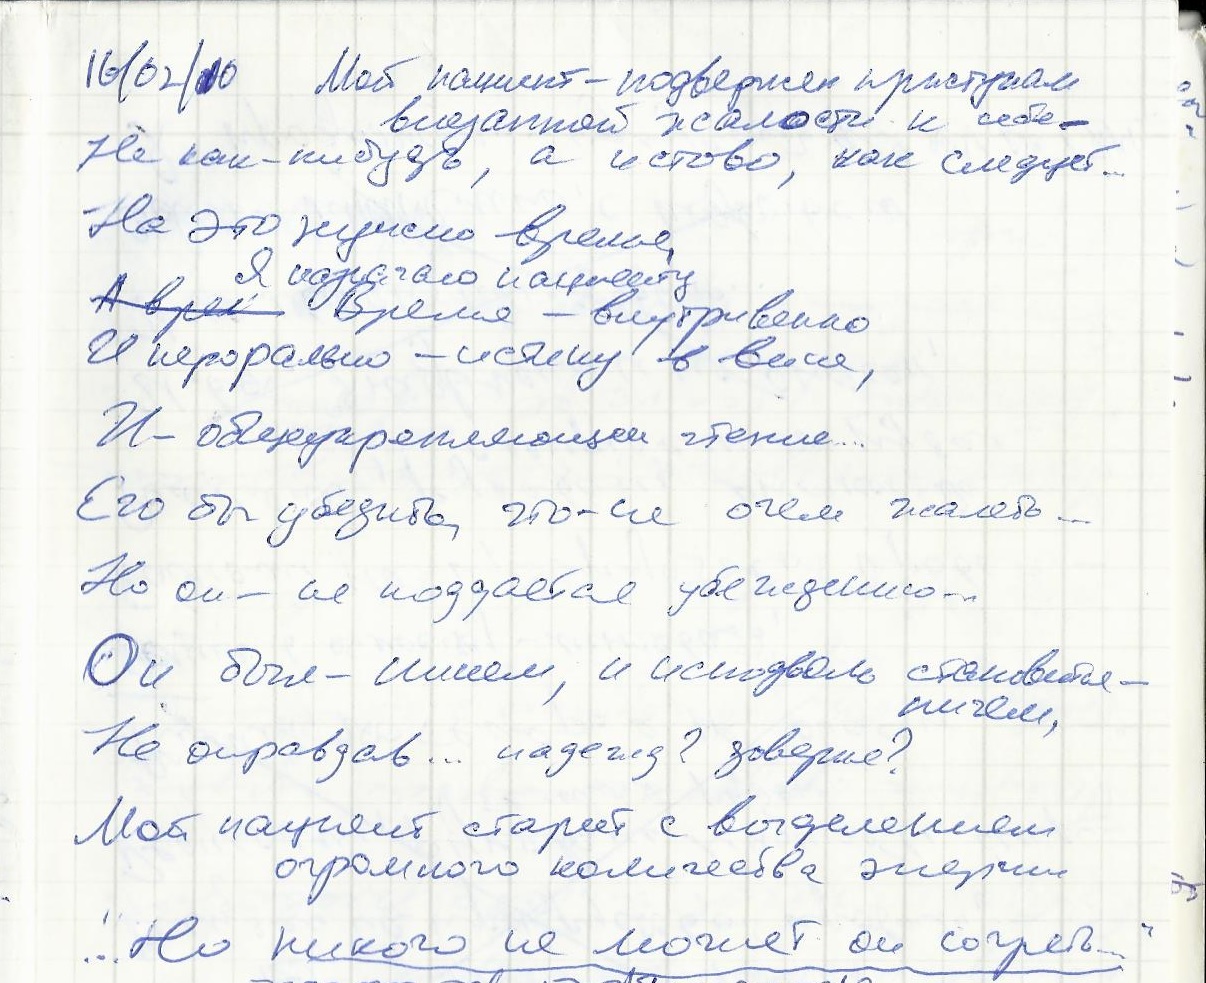 16/02/10 Мой пациент – подвержен приступам
внезапной жалости к себе –
Не как-нибудь, а истово, как следует...
На это нужно время,
Я назначаю пациенту
А врем Время – внутривенно
И перорально – истину в вине,
И – общеукрепляющее чтение...
Его бы убедить, что – не о чем жалеть...
Но он – не поддается убеждению...
Он был – никем, и исподволь становится –
ничем,
Не оправдав... надежд? доверие?
Мой пациент стареет с выделением
огромного количества энергии
"...Но никого не может он согреть..."